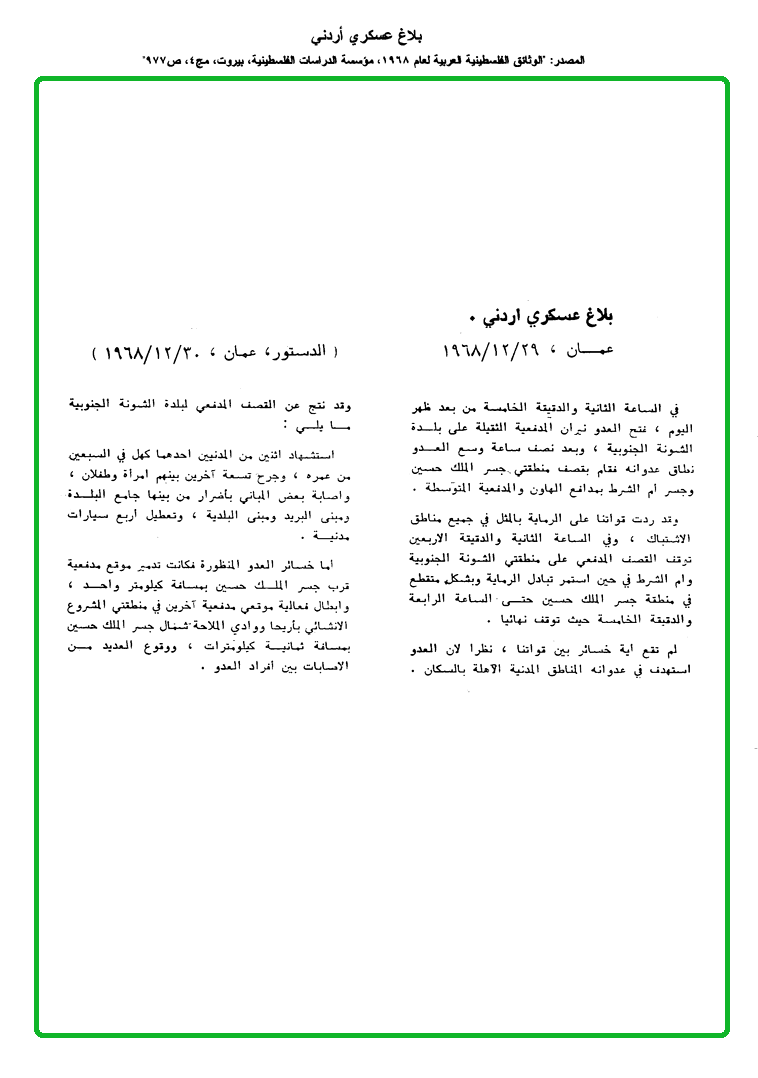 بلاغ عسكري أردني
المصدر: "الوثائق الفلسطينية العربية لعام ١٩٦٨، مؤسسة الدراسات الفلسطينية، بيروت، مج٤، ص٩٧٧"
بلاغ عسكري اردني .
عمــان ، ١٩٦٨/١٢/٢٩
في الساعة الثانية والدقيقة الخامسة من بعد ظهر
اليوم ، فتح العدو نيران المدفعية الثقيلة على بلــدة
الشونة الجنوبية ، وبعد نصف ساعة وسع العــدو
نطاق عدوانه فقام بقصف منطقتي جسر الملك حسين
وجسر ام الشرط بمدافع الهاون والمدفعية المتوسطة .
وقد ردت قواتنا على الرماية بالمثل في جميع مناطق
الاشتباك ، وفي الساعة الثانية والدقيقة الاربعين
توقف القصف المدفعي على منطقتي الشونة الجنوبية
وام الشرط في حين استمر تبادل الرماية وبشكل متقطع
في منطقة جسر الملك حسين حتــى الساعة الرابعة
والدقيقة الخامسة حيث توقف نهائيا .
لم تقع اية خسائر بين قواتنا ، نظرا لان العدو
استهدف في عدوانه المناطق المدنية الآهلة بالسكان .
( الدستور، عمان ، ١٩٦٨/١٢/٣٠ )
وقد نتج عن القصف المدفعي لبلدة الشونة الجنوبية
مــا يلــي :
استشهاد اثنين من المدنيين احدهما كهل في السبعين
من عمره ، وجرح تسعة آخرين بينهم امرأة وطفلان ،
واصابة بعض المباني بأضرار من بينها جامع البلــدة
ومبنى البريد ومبنى البلدية ، وتعطيل أربع سيارات
مدنيــة .
اما خسائر العدو المنظورة فكانت تدمير موقع مدفعية
قرب جسر الملــك حسين بمسافة كيلومتر واحــد ،
وابطال فعالية موقعي مدفعية آخرين في منطقتي المشروع
الانشائي بأريحا ووادي الملاحة شمال جسر الملك حسين
بمسافة ثمانيــة كيلومترات ، ووقوع العديد مــن
الاصابات بين أفراد العدو .